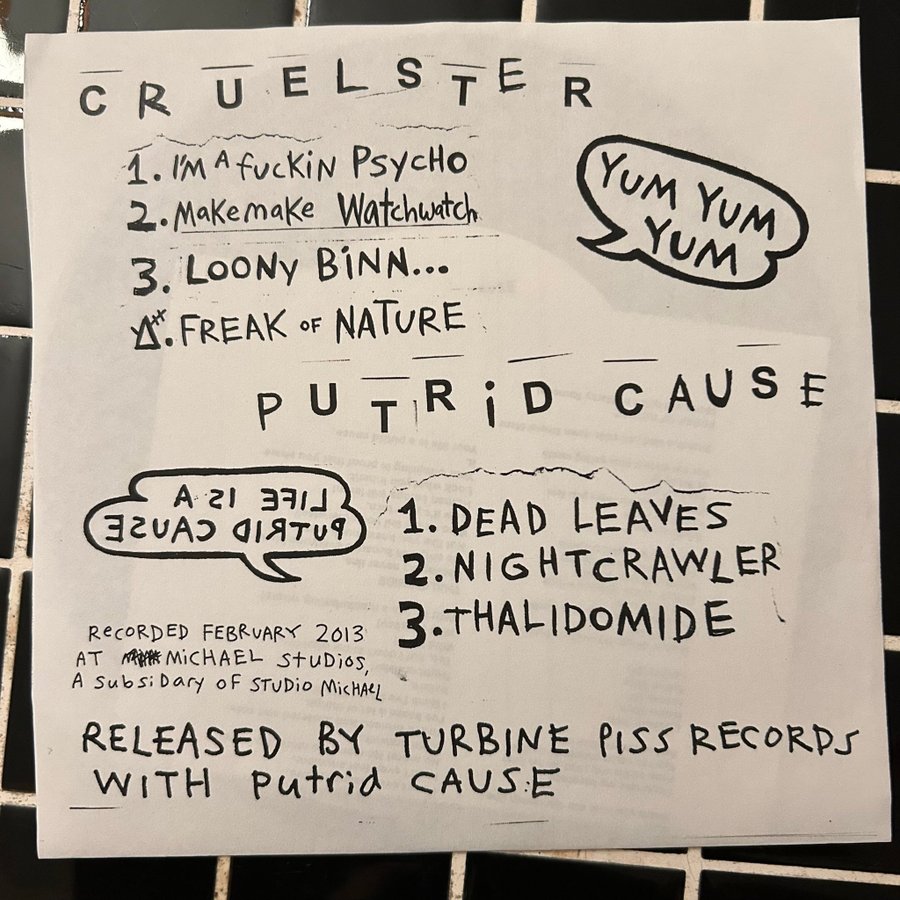 CRUELSTER
1. I'M A fuckin Psycho
2. Makemake Watchwatch
3. LOONY BiNN...
4. FREAK OF NATURE
YUM YUM
YUM
PUTRiD CAUSE
LIFE IS A
PUTRID CAUSE
1. DEAD LEAVES
2. NIGHTCRAWLER
3. THALIDOMIDE
RECORDED FEBRUARY 2013
AT MiCHAEL StUDiOS,
A SubSiDARY OF STUDIO MicHAEL
RELEASED BY TURBINE PISS RECORDS
WITH Putrid CAUSE